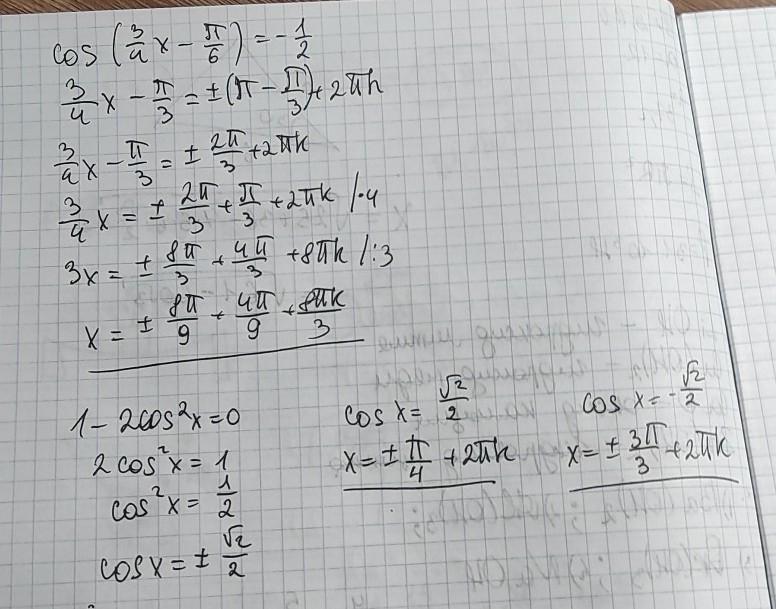 cos (3/4 x − π/6) = −1/2
3/4 x − π/3 = ±(π − π/3) + 2πn
3/4 x − π/3 = ± 2π/3 + 2πk
3/4 x = ± 2π/3 + π/3 + 2πk /·4
3x = ± 8π/3 + 4π/3 + 8πk /:3
x = ± 8π/9 + 4π/9 + 8πk/3
1 − 2cos²x = 0
2cos²x = 1
cos²x = 1/2
cos x = ± √2/2
cos x = √2/2
x = ± π/4 + 2πk
cos x = −√2/2
x = ± 3π/3 + 2πk